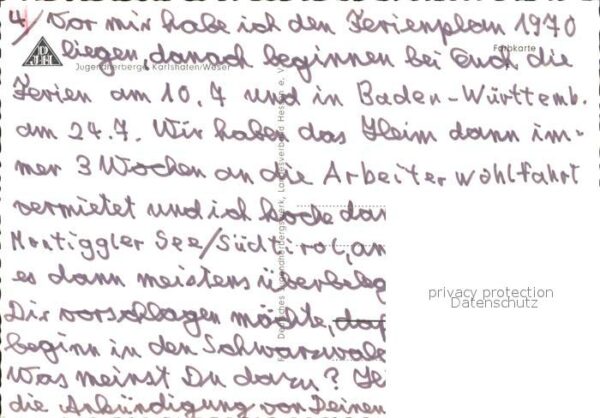 4) Vor mir habe ich den Ferienplan 1970
liegen, danach beginnen bei Euch die
DJH
Jugendherberge Karlshafen/Weser
Farbkarte
Ferien am 10.7 und in Baden-Württemb.
am 24.7. Wir haben das Heim dann im-
mer 3 Wochen an die Arbeiterwohlfahrt
vermietet und ich hocke dan
Montiggler See/Südtirol, an
es dann meistens überbeleg
Dir vorschlagen möchte,
beginn in den Schwarzwal
Was meinst Du dazu?
die Ankündigung von Deinen
Deutsches Jugendherbergswerk, Landesverband Hessen e. V.
privacy protection
Datenschutz